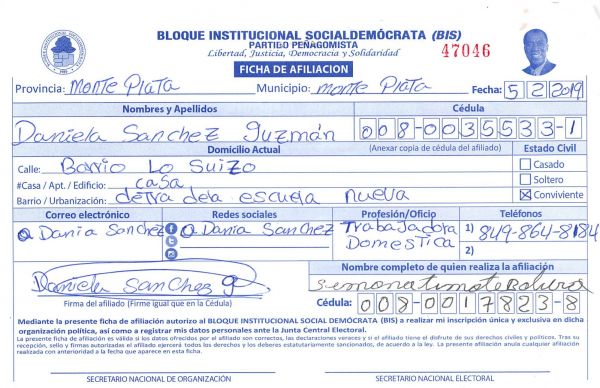 BLOQUE INSTITUCIONAL SOCIALDEMÓCRATA (BIS)
PARTIDO PEÑAGOMISTA
Libertad, Justicia, Democracia y Solidaridad
47046
FICHA DE AFILIACION
Provincia: Monte Plata Municipio: monte Plata Fecha: 5/2/2019
Nombres y Apellidos Cédula
Daniela Sanchez guzmán 008-0035533-1
Domicilio Actual (Anexar copia de cédula del afiliado) Estado Civil
Calle: Barrio Lo Suizo Casado
#Casa / Apt. / Edificio: casa Soltero
Barrio / Urbanización: detra dela escuela nueva Conviviente
Correo electrónico Redes sociales Profesión/Oficio Teléfonos
a Dania Sanchez a Dania Sanchez Trabajadora 1) 849-864-8184
Domestica 2)
Daniela Sanchez g. Nombre completo de quien realiza la afiliación
Firma del afiliado (Firme igual que en la Cédula) Cédula: 008-0017823-8
Mediante la presente ficha de afiliación autorizo al BLOQUE INSTITUCIONAL SOCIAL DEMÓCRATA (BIS) a realizar mi inscripción única y exclusiva en dicha
organización política, así como a registrar mis datos personales ante la Junta Central Electoral.
La presente ficha de afiliación es válida si los datos ofrecidos por el afiliado son correctos, las declaraciones veraces y si el afiliado tiene el disfrute de sus derechos civiles y políticos. Tras su
recepción, sello y firmas autorizadas el afiliado ejercerá todos los derechos y los deberes estatutariamente sancionados, de acuerdo a la ley. La presente afiliación anula cualquier afiliación
realizada con anterioridad a la fecha que aparece en esta ficha.
SECRETARIO NACIONAL DE ORGANIZACIÓN SECRETARIO NACIONAL ELECTORAL